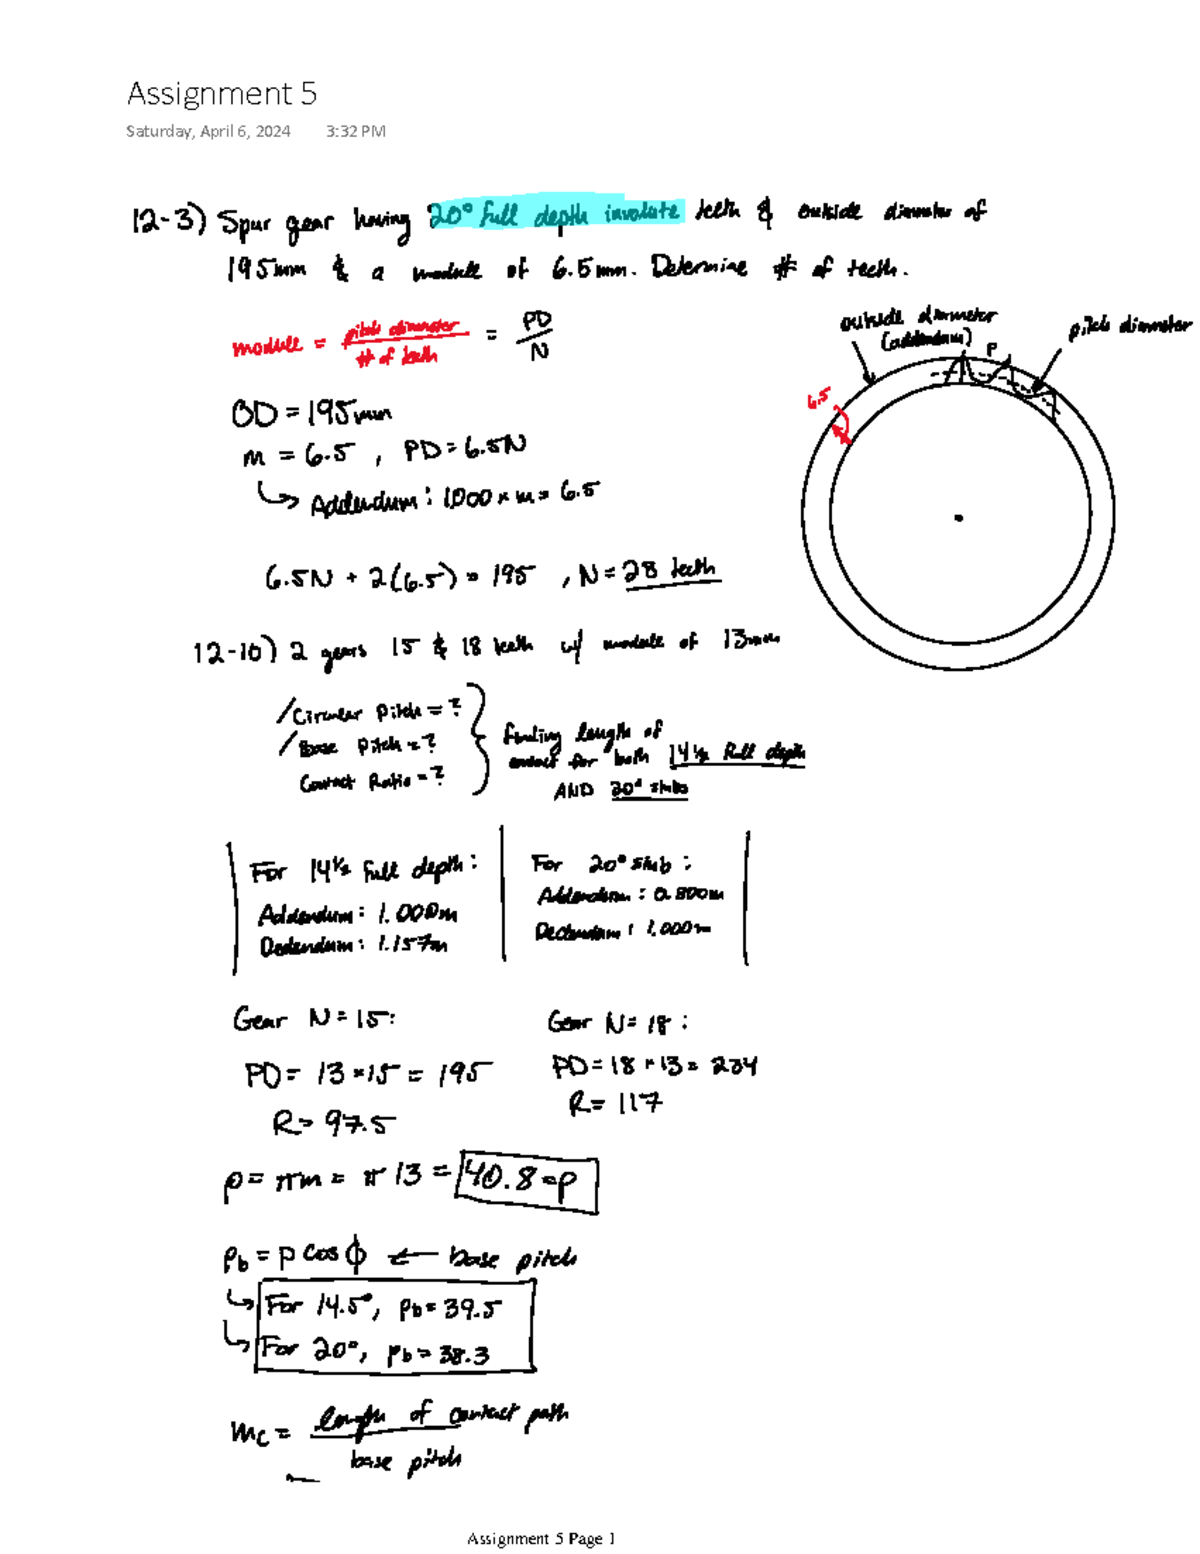 Assignment 5
Saturday, April 6, 2024 3:32 PM
12-3) Spur gear having 20° full depth involute teeth & outside diameter of
195mm & a module of 6.5mm. Determine # of teeth.
module = pitch diameter / # of teeth = PD / N
outside diameter
(addendum)
P
pitch diameter
6.5
OD = 195mm
m = 6.5 , PD = 6.5N
↳ Addendum: 1.000 × m = 6.5
6.5N + 2(6.5) = 195 , N = 28 teeth
12-10) 2 gears 15 & 18 teeth w/ module of 13mm
/Circular Pitch = ?
/Base Pitch = ?
Contact Ratio = ?
finding length of
contact for both 14½ Full depth
AND 20° stubs
For 14½ full depth:
Addendum: 1.000m
Dedendum: 1.157m
For 20° stub:
Addendum: 0.800m
Dedendum: 1.000m
Gear N = 15:
PD = 13 × 15 = 195
R = 97.5
Gear N = 18:
PD = 18 × 13 = 234
R = 117
p = πm = π 13 = 40.8 = p
Pb = P cos ϕ ← base pitch
↳ For 14.5°, Pb = 39.5
↳ For 20°, Pb = 38.3
mc = length of contact path / base pitch
Assignment 5 Page 1